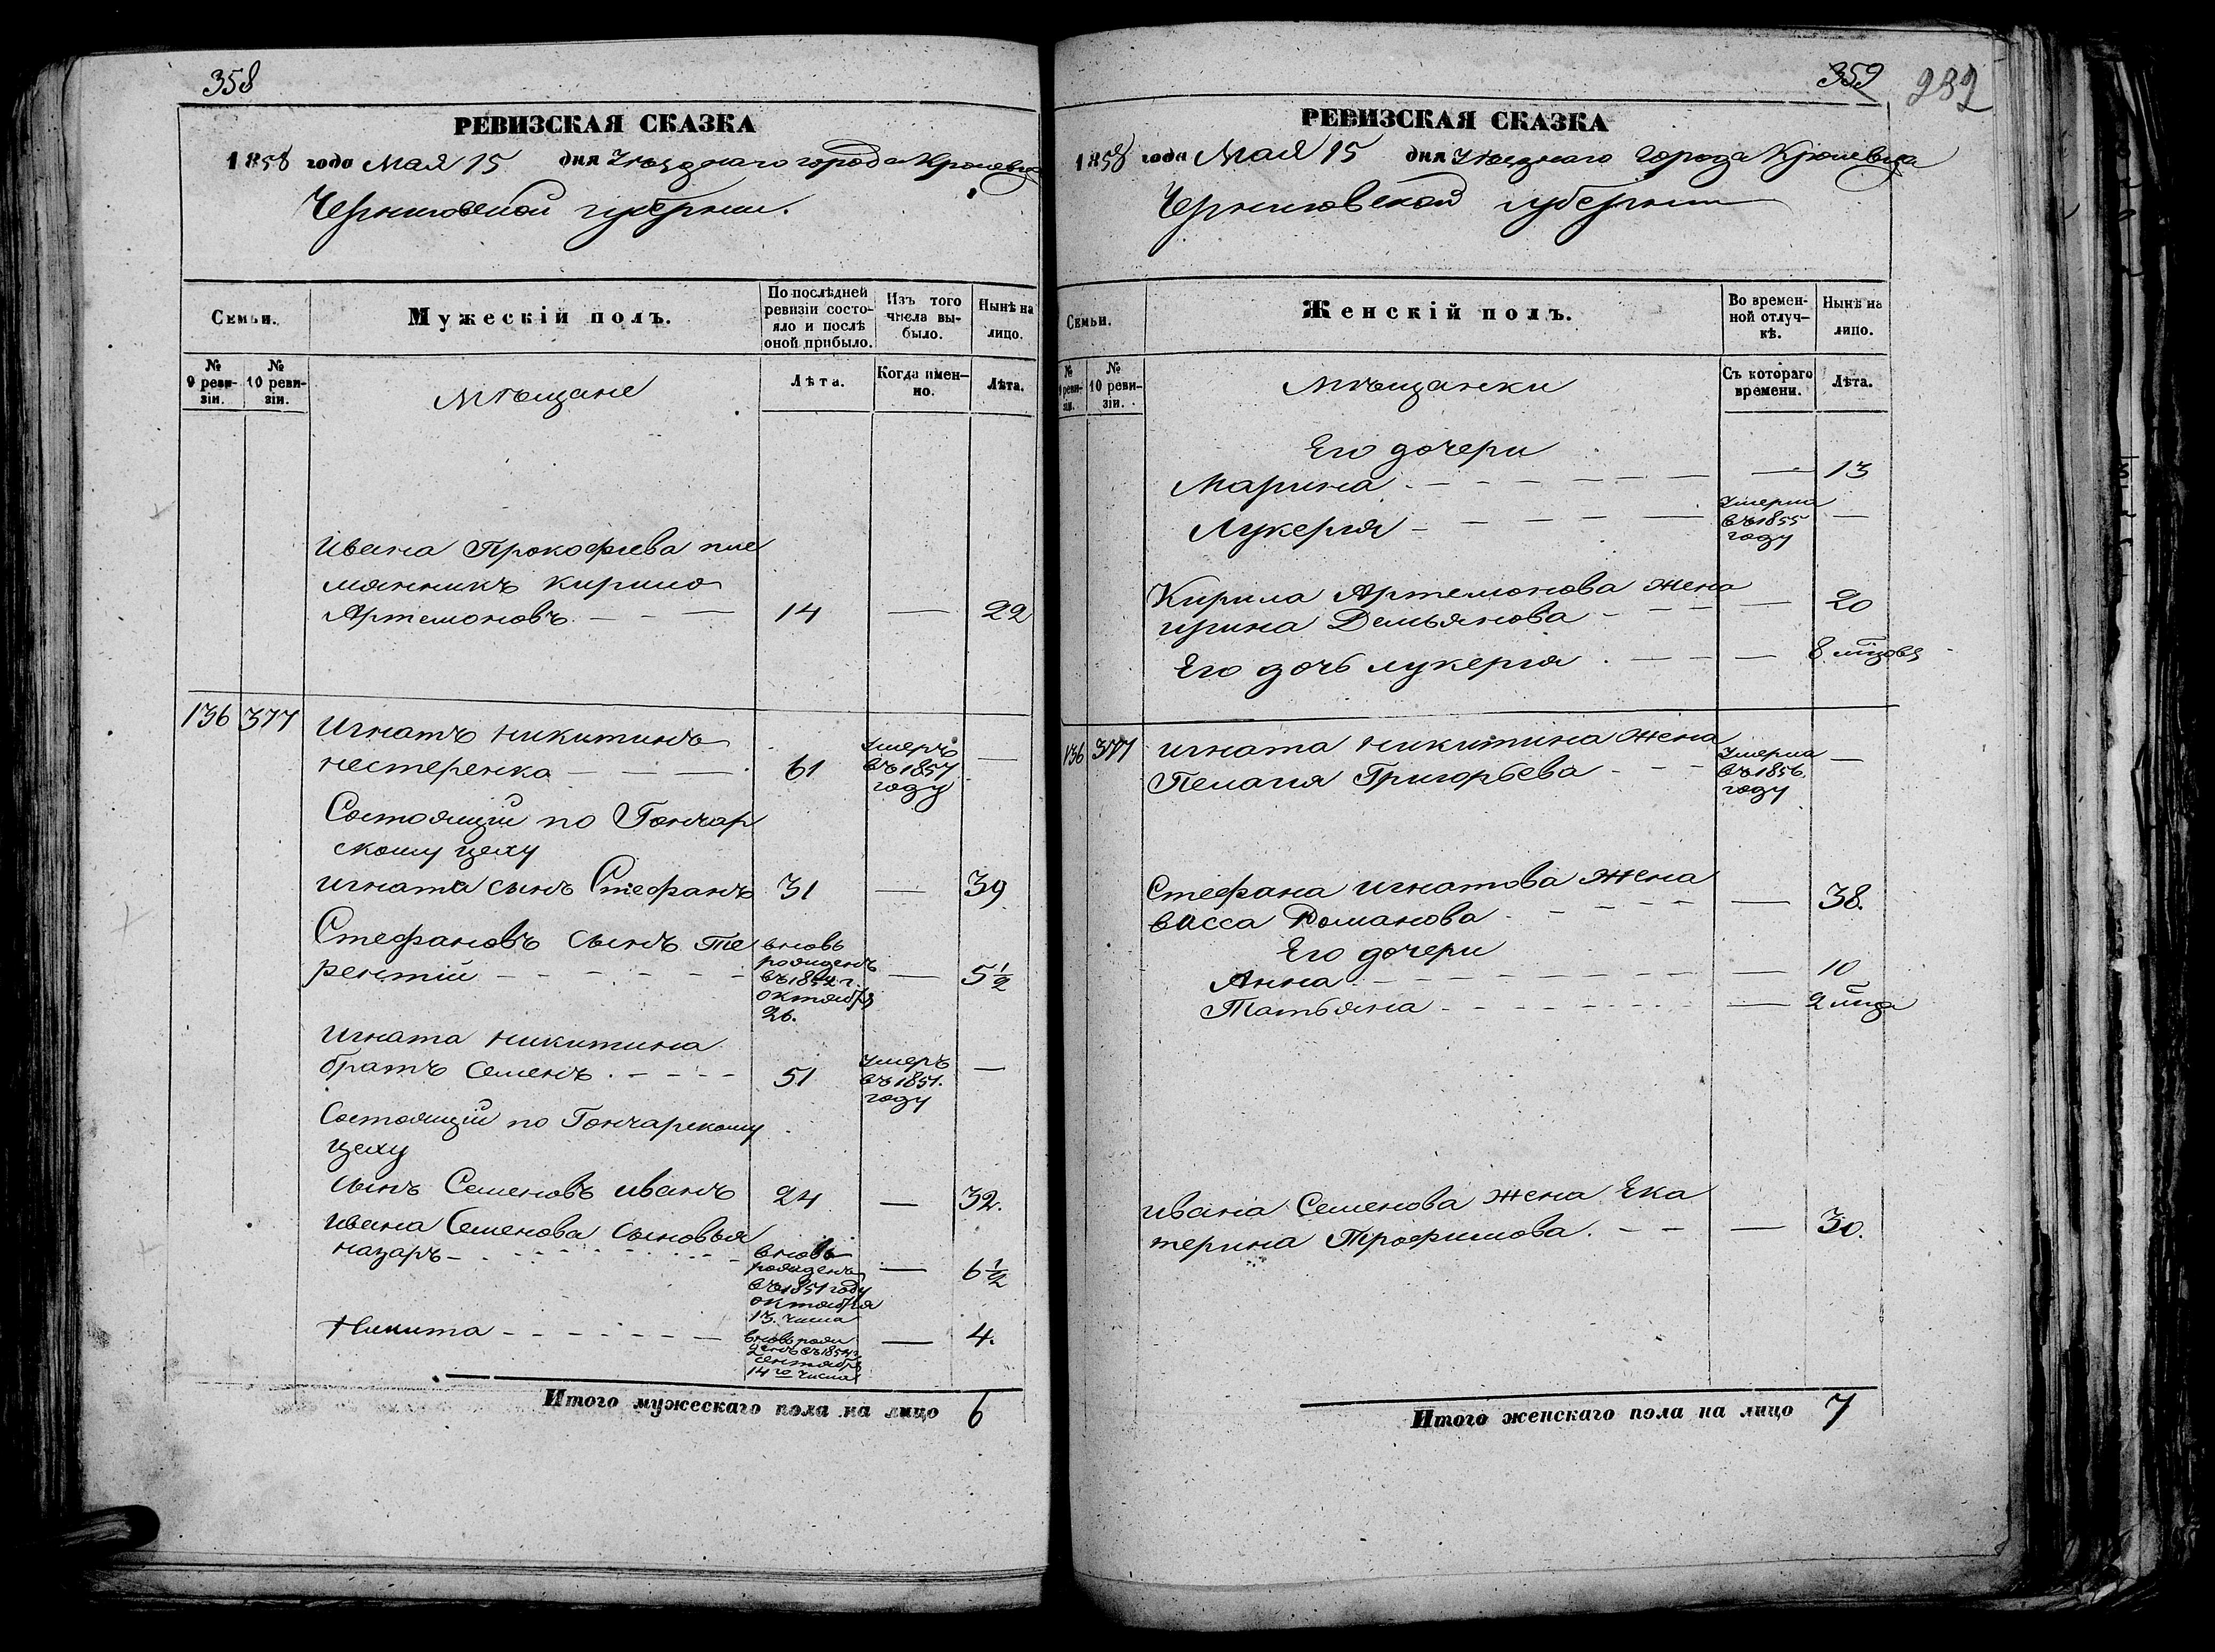 358
РЕВИЗСКАЯ СКАЗКА
1858 года Мая 15 дня Уѣзднаго города Кролевца
Черниговской губернии.
Семьи.
Мужескій полъ.
По послѣдней
ревизіи состо-
яло и послѣ
оной прибыло.
Изъ того
числа вы-
было.
Нынѣ на
лицо.
№
9 реви-
зіи.
№
10 реви-
зіи.
Мѣщане
Лѣта.
Когда имен-
но.
Лѣта.
Ивана Прокофиева пле
мянникъ Кирило
Артемоновъ — 14 — 22
136 377 Игнатъ Никитинъ
Нестеренко — 61 Умеръ въ 1857 году —
Состоящій по Гончар
скому цеху
Игната сынъ Стефанъ 31 — 39
Стефановъ сынъ Те
рентій — вновь рожденъ въ 1852 г. октября 26. — 5 1/2
Игната Никитина
братъ Семенъ — 51 Умеръ въ 1851. году —
Состоящій по Гончарскому
цеху
сынъ Семеновъ Иванъ 24 — 32.
Ивана Семенова сыновья
Назаръ — вновь рожденъ въ 1851 году октября 13. числа — 6 1/2
Никита — вновь рожденъ въ 1854 г. сентября 14го числа — 4.
Итого мужескаго пола на лицо 6
359 232
РЕВИЗСКАЯ СКАЗКА
1858 года Мая 15 дня Уѣзднаго города Кролевца
Черниговской губернии
Семьи.
Женскій полъ.
Во времен-
ной отлуч-
кѣ.
Нынѣ на
лицо.
№
9 реви-
зіи.
№
10 реви-
зіи.
Мѣщанки
Съ котораго
времени.
Лѣта.
Его дочери
Марина — — 13
Лукерия — Умерла въ 1855 году —
Кирила Артемонова жена
Ирина Демьянова — — 20
Его дочь Лукерия — — 8 мцовъ
136 377 Игната Никитина жена
Пелагия Григорьева — Умерла въ 1856. году —
Стефана Игнатова жена
Васса Романова — — 38.
Его дочери
Анна — — 10
Татьяна — — 2 мца
Ивана Семенова жена Ека
терина Трофимова. — — 30.
Итого женскаго пола на лицо 7